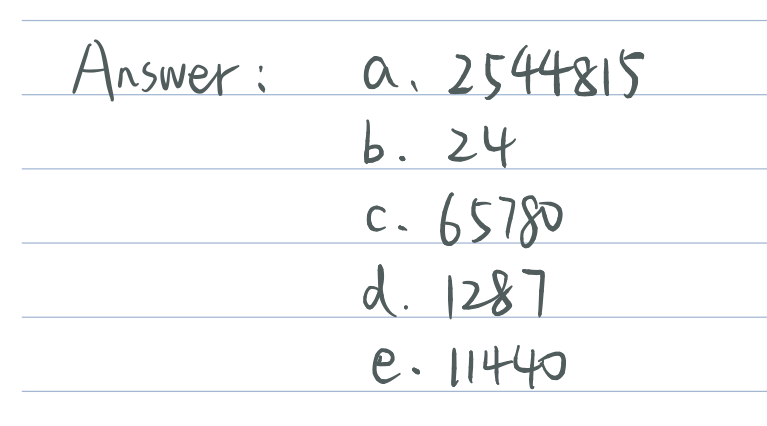 Answer: a. 2544815
b. 24
c. 65780
d. 1287
e. 11440